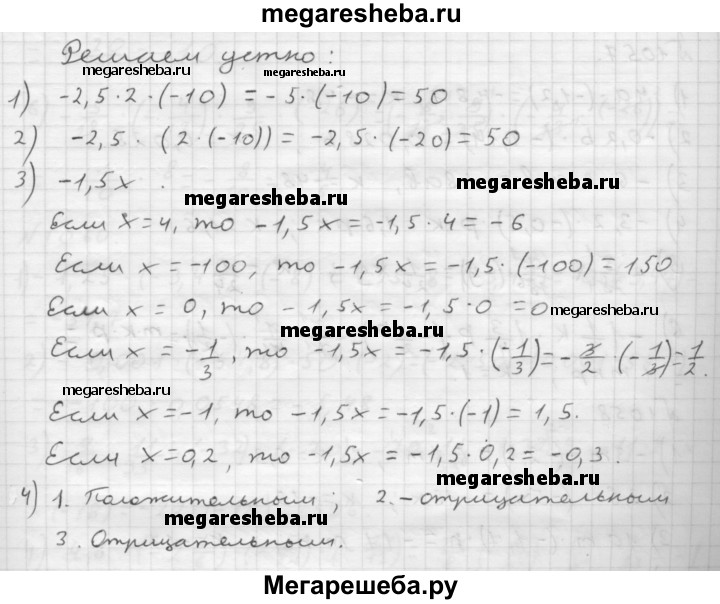 megaresheba.ru
Решаем устно:
megaresheba.ru megaresheba.ru
1) -2,5·2·(-10) = -5·(-10) = 50
2) -2,5·(2·(-10)) = -2,5·(-20) = 50
3) -1,5x.
megaresheba.ru megaresheba.ru
Если x=4, то -1,5x = -1,5·4 = -6
Если x = -100, то -1,5x = -1,5·(-100) = 150
Если x = 0, то -1,5x = -1,5·0 = 0
megaresheba.ru
megaresheba.ru
Если x = -1/3, то -1,5x = -1,5·(-1/3) = -3/2·(-1/3) = 1/2.
megaresheba.ru
Если x = -1, то -1,5x = -1,5·(-1) = 1,5.
Если x=0,2, то -1,5x = -1,5·0,2 = -0,3.
megaresheba.ru
4) 1. Положительным; 2. - отрицательным
megaresheba.ru
3. Отрицательным.
Мегарешеба.ру